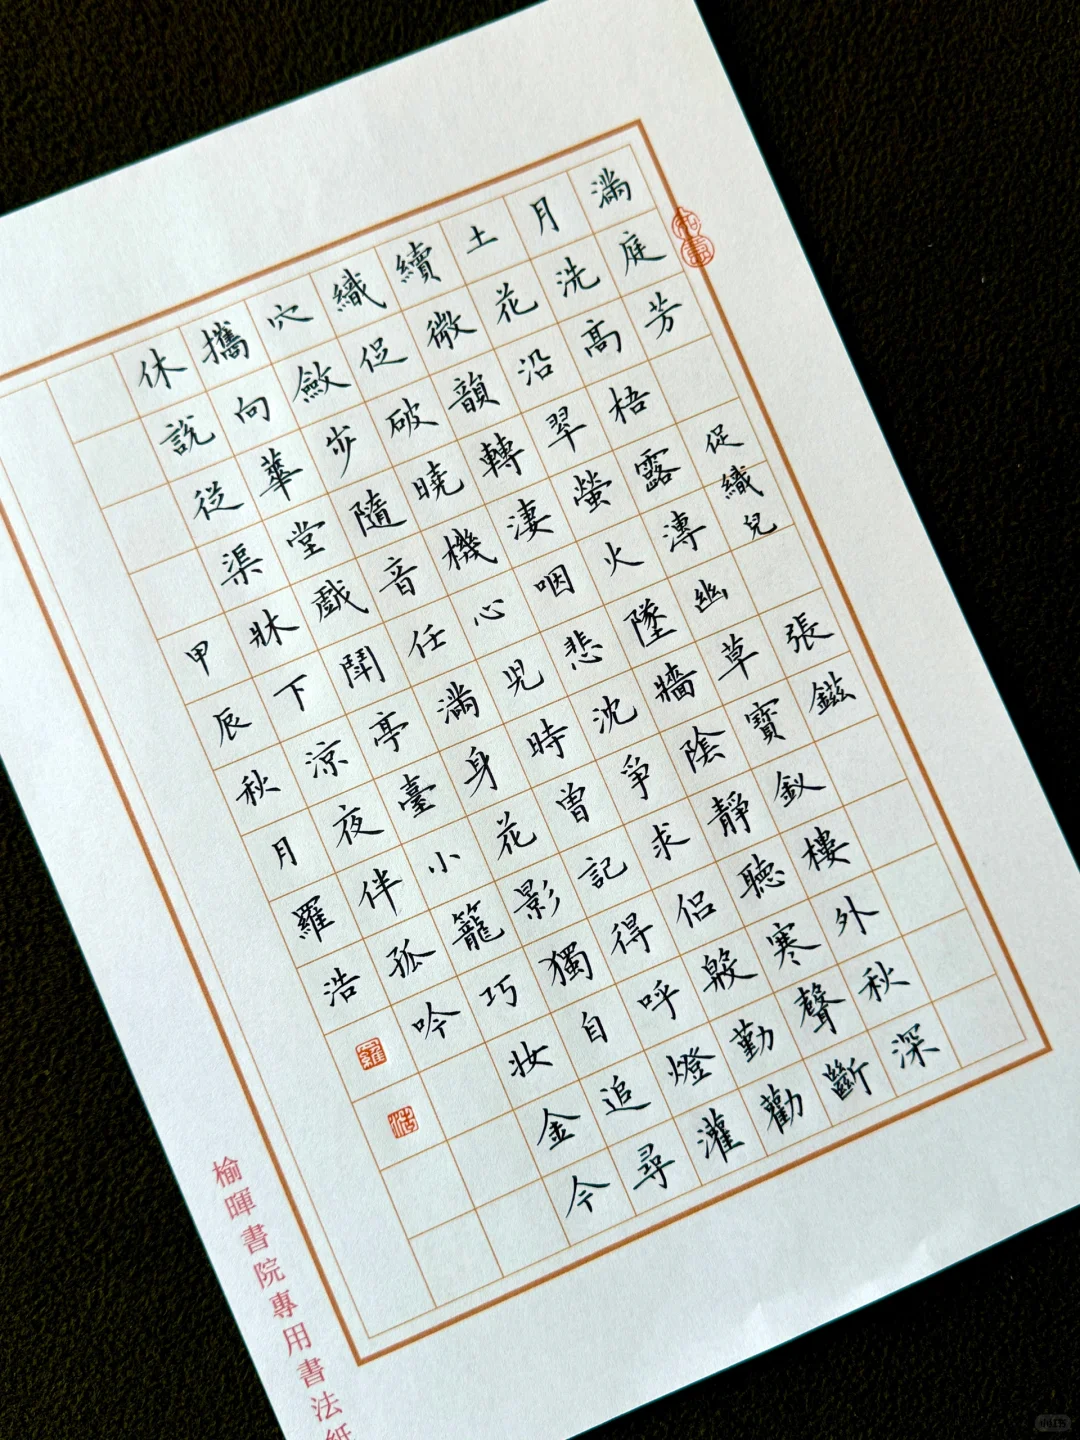 滿庭芳 促織兒 張鎡
月洗高梧露漙幽草寶釵樓外秋深
土花沿翠螢火墜牆陰靜聽寒聲斷
續微韻轉淒咽悲沈爭求侶殷勤勸
織促破曉機心兒時曾記得呼燈灌
穴斂步隨音任滿身花影獨自追尋
攜向華堂戲鬥亭臺小籠巧妝金今
休說從渠牀下涼夜伴孤吟
甲辰秋月羅浩
羅
浩
榆暉書院專用書法紙